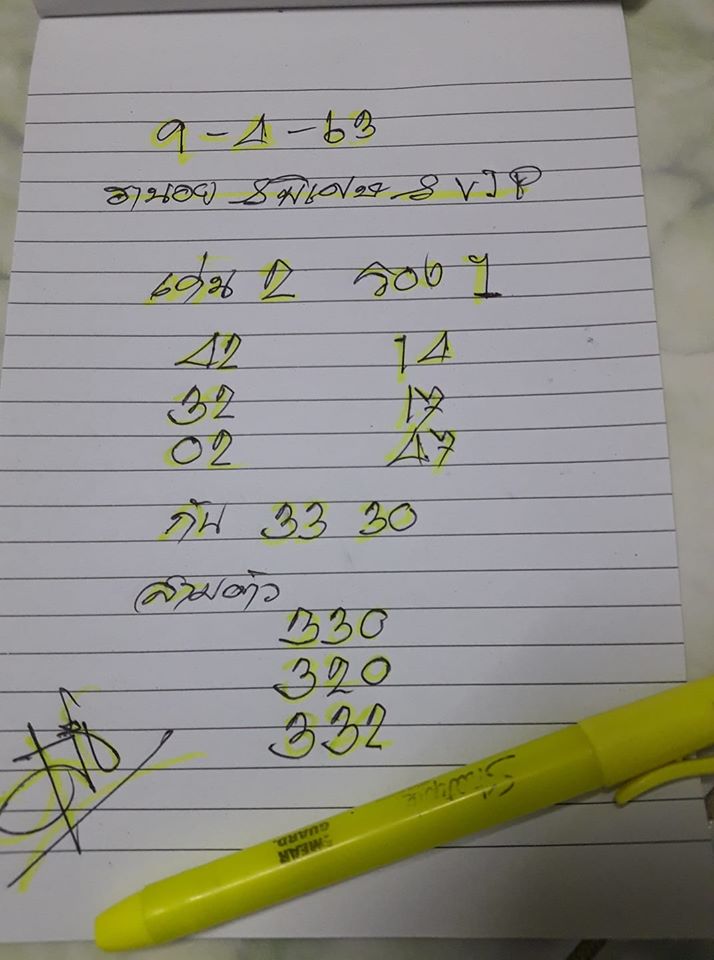 9-4-63
ฮานอย & พิเศษ & VIP
เด่น 2 รอง 1
42 14
32 17
02 47
กัน 33 30
สามตัว
330
320
332
SMEAR GUARD.